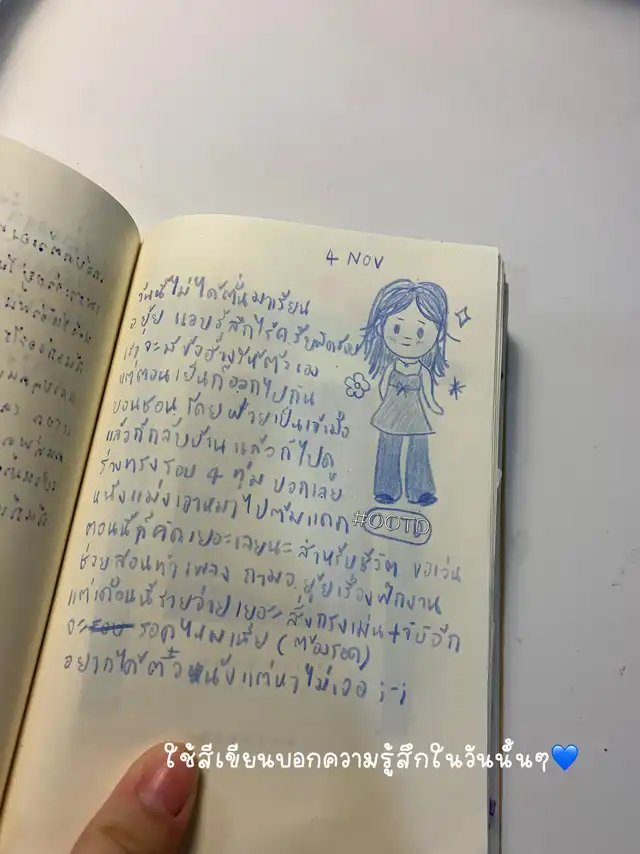 4 NOV
วันนี้ไม่ได้ตื่นมาเรียน
อ.ยุ้ย แอบรู้สึกไร้ความรับผิดชอบ
เราจะมีข้ออ้างให้ตัวเอง
แต่ตอนเย็นก็ออกไปกิน
บอนชอน โดยฝ้ายเป็นเจ้ามือ
แล้วก็กลับบ้าน แล้วก็ไปดู
ร่างทรงรอบ 4 ทุ่ม บอกเลย
หนังแม่งเอาหมาไปต้มแดก
ตอนนี้ก็คิดเยอะเลยนะ สำหรับชีวิต ขอเว่น
ช่วยสอนทำเพลง ถามอ.ยุ้ยเรื่องฝึกงาน
แต่เดือนนี้รายจ่ายเยอะ สั่งกรงเม่น+จิบิอีก
จะรอดไหมเนี่ย (ต้องรอด)
อยากได้ตั๋วหนังแต่หาไม่เจอ ;-;
#OOTD
ใช้สีเขียนบอกความรู้สึกในวันนั้นๆ💙